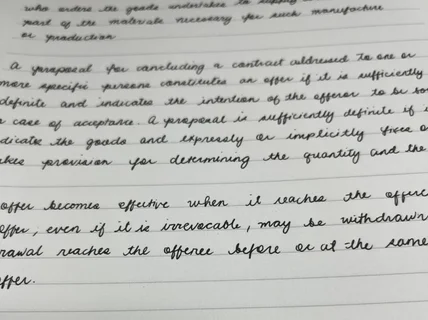 who orders the goods undertakes to supply
part of the materials necessary for such manufacture
or production
A proposal for concluding a contract addressed to one or
more specific persons constitutes an offer if it is sufficiently
definite and indicates the intention of the offeror to be
case of acceptance. A proposal is sufficiently definite if
dicates the goods and expressly or implicitly fixes o
akes provision for determining the quantity and the
offer becomes effective when it reaches the offere
offer, even if it is irrevocable, may be withdrawn
rawal reaches the offeree before or at the same
ffer.